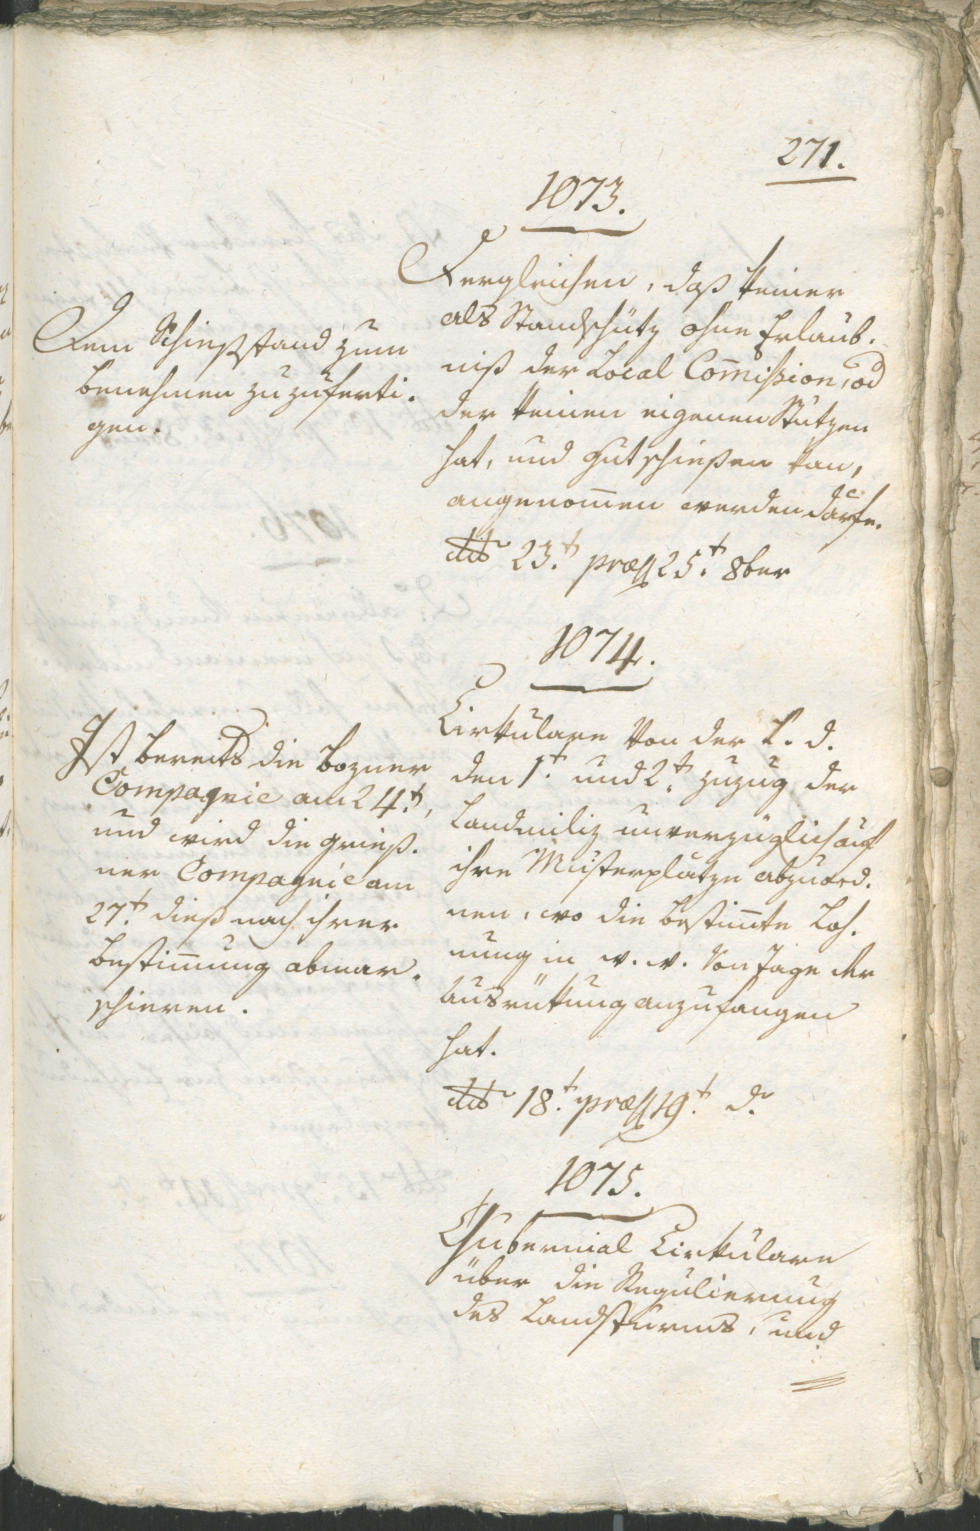 271.
1073.
Dergleichen, daß keiner
als Standschütz ohne Erlaub-
niß der Local Com̄ißion, od
der keinen eigenen Stutzen
hat, und gut schießen kan,
angenom̄en werden därfe.
dtto 23.t præs 25.t 8ber
Dem Schießstand zum
benehmen zuzuferti-
gen.
1074.
Cirkulare von der L. d.
den 1.t und 2.t Zuzug der
Landmiliz unverzüglich auf
ihre Musterplätze abzuord-
nen, wo die bestim̄te Löh-
nung in w. w. Von Tage der
Ausrükung anzufangen
hat.
dtto 18.t præs 19.t d.
Ist bereits die Bozner
Compagnie am 24.t,
und wird die Grieß-
ner Compagnie am
27.t dieß nach ihrer
Bestim̄ung abmar-
schieren.
1075.
Gubernial Cirkulare
über die Regulierung
des Landsturms, und